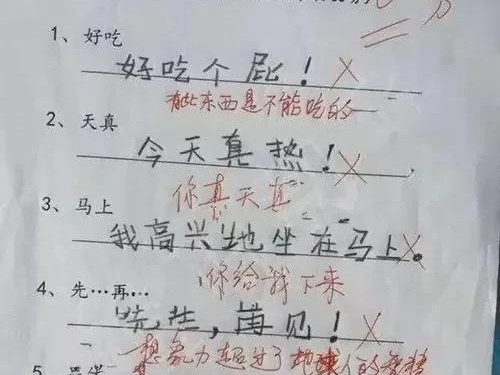 1、好吃
好吃个屁！×
有些东西是不能吃的
2、天真
今天真热！×
你真天真
3、马上
我高兴地坐在马上。×
你给我下来
4、先…再…
先生，再见！×
想象力超过了地球人的
5、